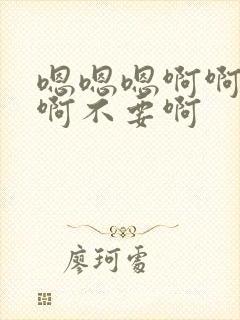 嗯嗯嗯啊啊
啊不要啊
廖珂雪